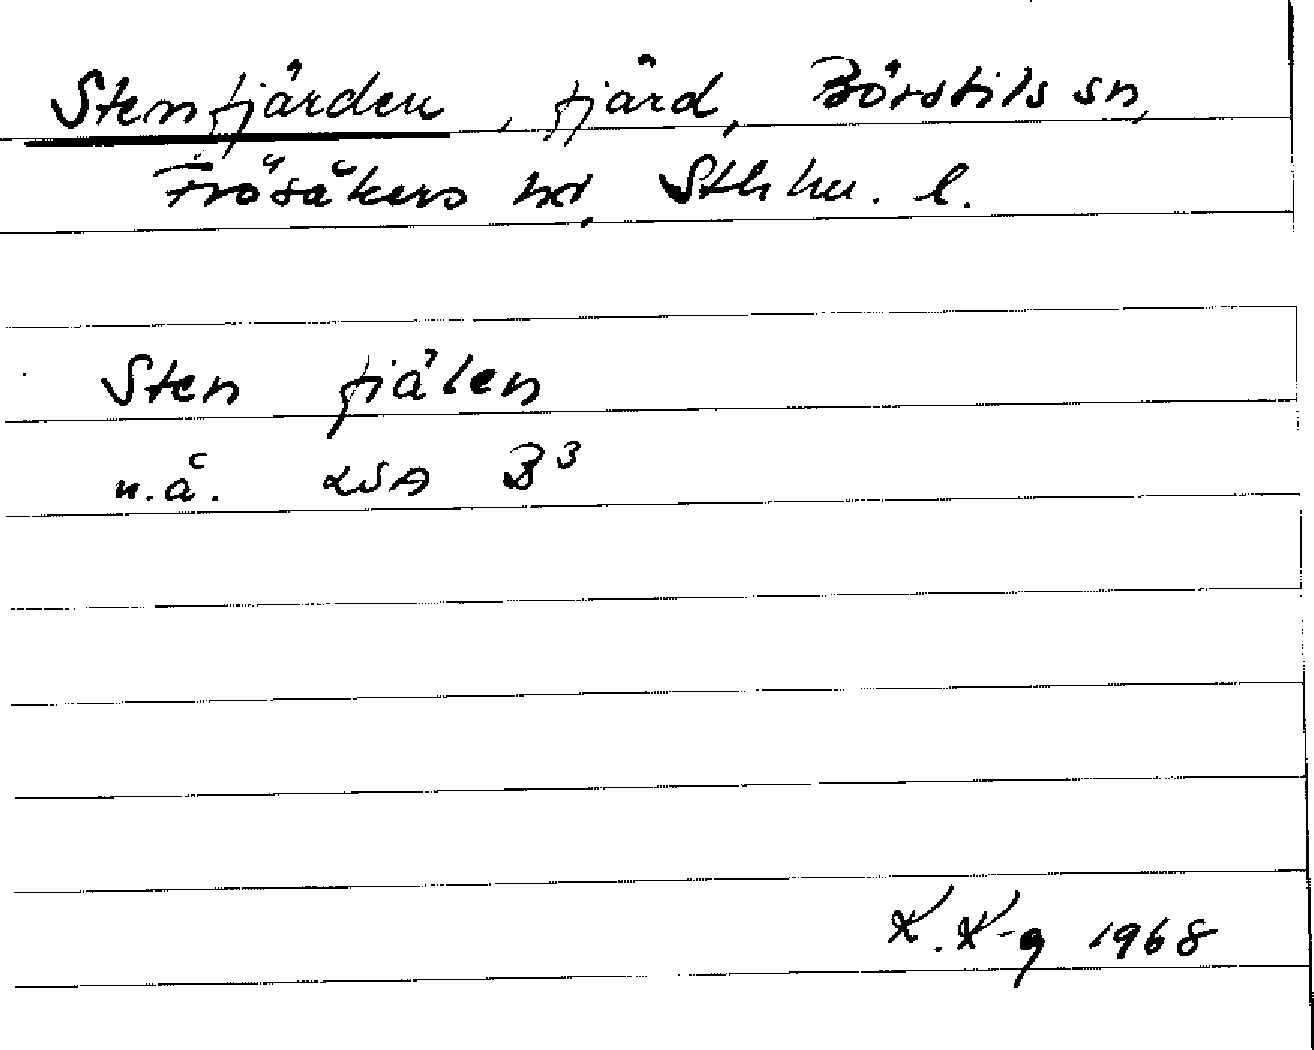 Stenfjärden, fjärd, Börstils sn,
Frösåkers hd, Sthlm. l.
Sten fjälen
n.å. LSA B³
K. K-g 1968